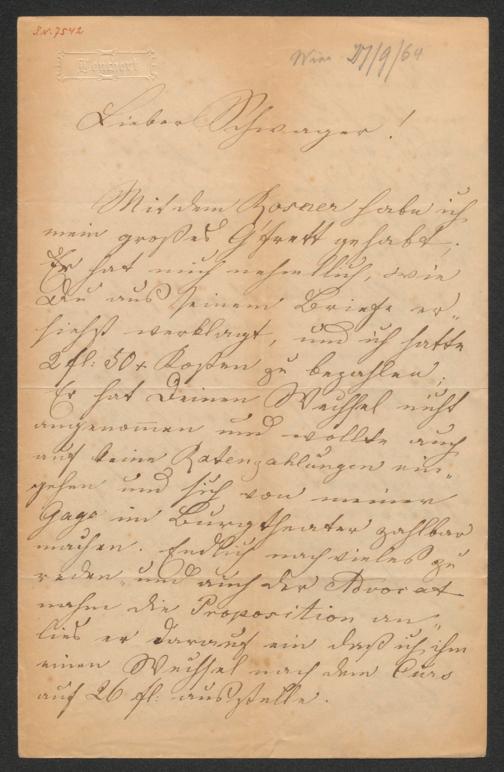 I.N. 7542
Wien 27/9/64
Lieber Schwager!
Mit dem Rosner habe ich
mein großes G'frett gehabt;
Er hat mich nehmllich, wie
Du aus seinem Briefe er-
siehst verklagt, und ich hatte
2 fl: 50 x Kosten zu bezahlen;
Er hat Deinen Wechsel nicht
angenommen und wollte auch
auf keine Ratenzahlungen ein-
gehen und sich von meiner
Gage im Burgtheater zahlbar
machen. Endlich nach vieles zu
reden und auch der Advocat
nahm die Proposition an,
lies er darauf ein daß ich ihm
einen Wechsel nach dem Curs
auf 26 fl: ausstelle.